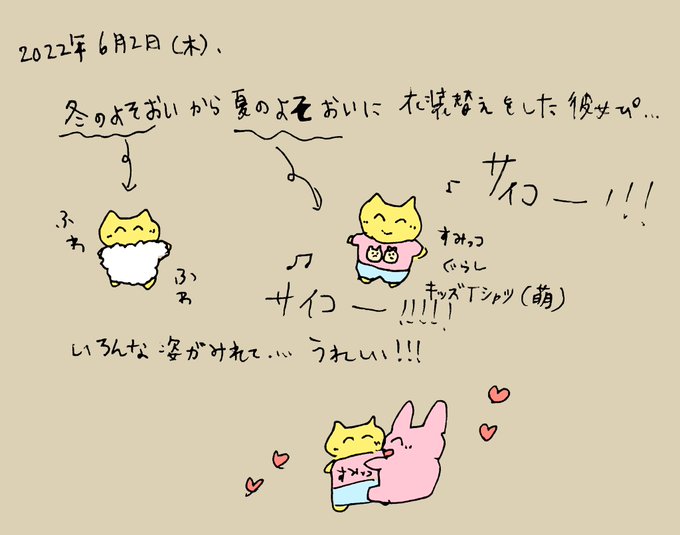 2022年6月2日(木).
冬のよそおいから夏のよそおいに衣装替えをした彼女ぴ...
♪サイコー!!!
ふわ
ふわ
すみっコ
ぐらし
キッズTシャツ(萌)
♫サイコー!!!!!
いろんな姿がみれて.... うれしい!!!
すみっコ